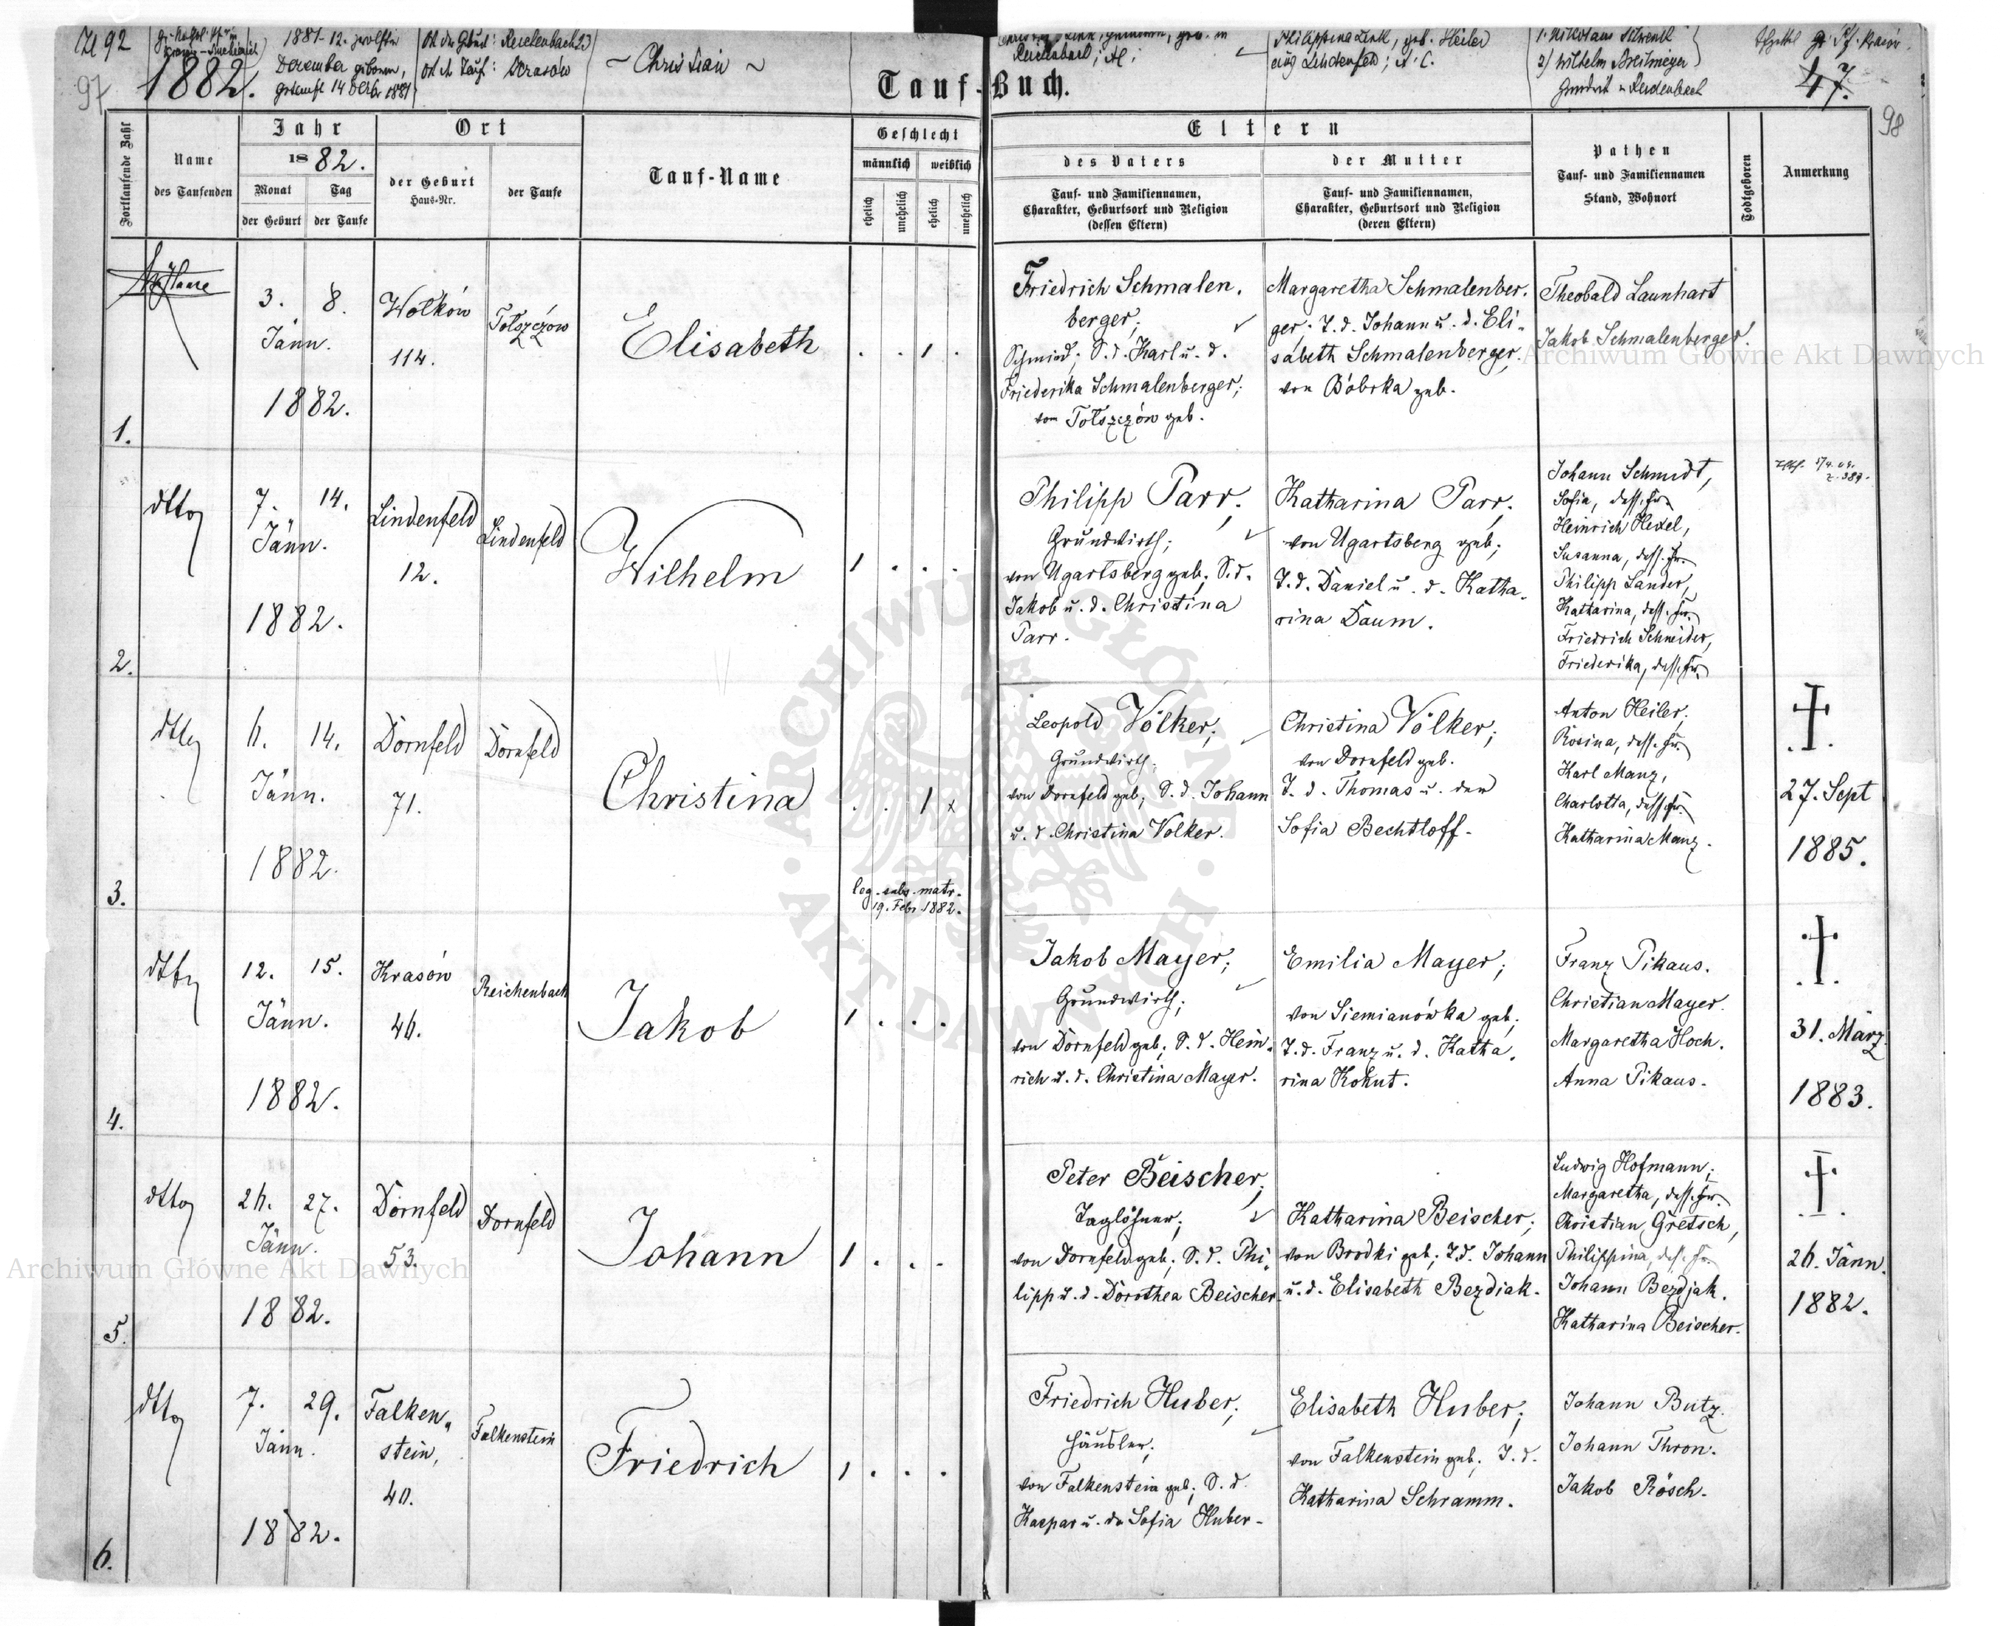 1881-12. zwölfter
Dezember geboren,
getauft 14 Dezbr 1881
Ort der Geburt: Reichenbach 23
Ort der Taufe: Krasów
~ Christian ~
Reichenbach; AC;
Philippina Link, geb. Heiler
aus Lindenfeld; A. C.
2) Wilhelm Breitmeyer
Grundwirt in Reichenbach
97
1882.
Tauf-Buch.
47.
98
Fortlaufende Zahl
Name
des Taufenden
Jahr
1882.
Monat
der Geburt
Tag
der Taufe
Ort
der Geburt
Haus-Nr.
der Taufe
Tauf-Name
Geschlecht
männlich
weiblich
ehelich
unehelich
ehelich
unehelich
Eltern
des Vaters
Tauf- und Familiennamen,
Charakter, Geburtsort und Religion
(dessen Eltern)
der Mutter
Tauf- und Familiennamen,
Charakter, Geburtsort und Religion
(deren Eltern)
Pathen
Tauf- und Familiennamen
Stand, Wohnort
Todtgeboren
Anmerkung
1.
3. 8.
Jänn.
1882.
Wołków
114.
Tołszczów
Elisabeth
. . 1 .
Friedrich Schmalen-
berger;
Schmied; S. d. Karl u. d.
Friederika Schmalenberger;
von Tołszczów geb.
Margaretha Schmalenber-
ger. T. d. Johann u. d. Eli-
sabeth Schmalenberger,
von Bóbrka geb.
Theobald Launhart
Jakob Schmalenberger.
2.
dtto
7. 14.
Jänn.
1882.
Lindenfeld
12.
Lindenfeld
Wilhelm
1 . . .
Philipp Parr,
Grundwirth;
von Ugartsberg geb. S. d.
Jakob u. d. Christina
Parr.
Katharina Parr,
von Ugartsberg geb;
T. d. Daniel u. d. Katha-
rina Daum.
Johann Schmidt,
Sofia, dess. Fr.
Heinrich Hexel,
Susanna, dess. Fr.
Philipp Sander,
Katharina, dess. Fr.
Friedrich Schneider,
Friederika, dess. Fr.
3.
dtto
6. 14.
Jänn.
1882.
Dornfeld
71.
Dornfeld
Christina
. . 1 x
leg. subs. matr.
19. Febr. 1882.
Leopold Völker;
Grundwirth;
von Dornfeld geb; S. d. Johann
u. d. Christina Volker.
Christina Völker;
von Dornfeld geb.
T. d. Thomas u. der
Sofia Bechtloff.
Anton Heiler,
Rosina, dess. Fr.
Karl Manz,
Charlotta, dess. Fr.
Katharina Manz.
27. Sept
1885.
4.
dtto
12. 15.
Jänn.
1882.
Krasów
46.
Reichenbach
Jakob
1 . . .
Jakob Mayer;
Grundwirth;
von Dornfeld geb; S. d. Hein-
rich u. d. Christina Mayer.
Emilia Mayer;
von Siemianówka geb;
T. d. Franz u. d. Katha-
rina Kohut.
Franz Pikaus.
Christian Mayer.
Margaretha Hoch.
Anna Pikaus.
31. März
1883.
5.
dtto
26. 27.
Jänn.
1882.
Dornfeld
53.
Dornfeld
Johann
1 . . .
Peter Beischer,
Taglöhner;
von Dornfeld geb; S. d. Phi-
lipp u. d. Dorothea Beischer.
Katharina Beischer;
von Brodki geb; T. d. Johann
u. d. Elisabeth Bezdiak.
Ludwig Hofmann;
Margaretha, dess. Fr.
Christian Gretsch,
Philippina, dess. Fr.
Johann Bezdjak.
Katharina Beischer.
26. Jänn.
1882.
6.
dtto
7. 29.
Jänn.
1882.
Falken-
stein,
40.
Falkenstein
Friedrich
1 . . .
Friedrich Huber;
Häusler;
von Falkenstein geb; S. d.
Kaspar u. der Sofia Huber.
Elisabeth Huber;
von Falkenstein geb; T. d.
Katharina Schramm.
Johann Butz.
Johann Thron.
Jakob Rösch.
Archiwum Główne Akt Dawnych
Archiwum Główne Akt Dawnych
ARCHIWUM GŁÓWNE AKT DAWNYCH